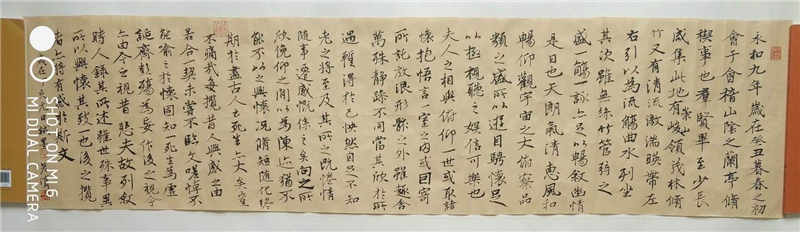 永和九年歲在癸丑暮春之初
會于會稽山陰之蘭亭脩
禊事也群賢畢至少長
咸集此地有崇山峻領茂林脩
竹又有清流激湍暎帶左
右引以為流觴曲水列坐
其次雖無絲竹管弦之
盛一觴一詠亦足以暢敘幽情
是日也天朗氣清惠風和
暢仰觀宇宙之大俯察品
類之盛所以遊目騁懷足
以極視聽之娛信可樂也
夫人之相與俯仰一世或取諸
懷抱悟言一室之內或因寄
所託放浪形骸之外雖趣舍
萬殊靜躁不同當其欣於所
遇暫得於己怏然自足不知
老之將至及其所之既惓情
隨事遷感慨係之矣向之所
欣俛仰之間以為陳迹猶不
能不以之興懷況脩短隨化終
期於盡古人云死生亦大矣豈
不痛哉每攬昔人興感之由
若合一契未嘗不臨文嗟悼不
能喻之於懷固知一死生為虛
誕齊彭殤為妄作後之視今
亦由今之視昔悲夫故列敘
時人錄其所述雖世殊事異
所以興懷其致一也後之攬
者亦將有感於斯文
SHOT ON MI 6
MI DUAL CAMERA